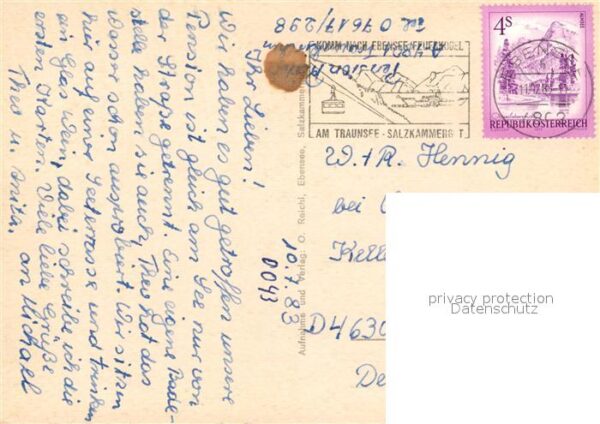 Ihr Lieben!
Wir haben es gut getroffen unsere
Pension ist gleich am See nur von
der Straße getrennt. Eine eigene Bade-
stelle haben sie auch, Theo hat das
Wasser schon ausprobiert. Wir sitzen
hier auf einer Seeterrasse und trinken
ein Glas Wein, dabei schreibe ich die
ersten Karten. Viele liebe Grüße
Theo u. Anita. an Michael
10.7.83
0043
Pension
A 4801 Traunkirchen
Tel. 07617/298
Aufnahme und Verlag: O. Reichl, Ebensee, Salzkammer
KOMM NACH EBENSEE/FEUERKOGEL
AM TRAUNSEE - SALZKAMMERGUT
4S
REPUBLIK ÖSTERREICH
EBENSEE
4802
W. + R. Hennig
bei
Kell
D4630
De
privacy protection
Datenschutz